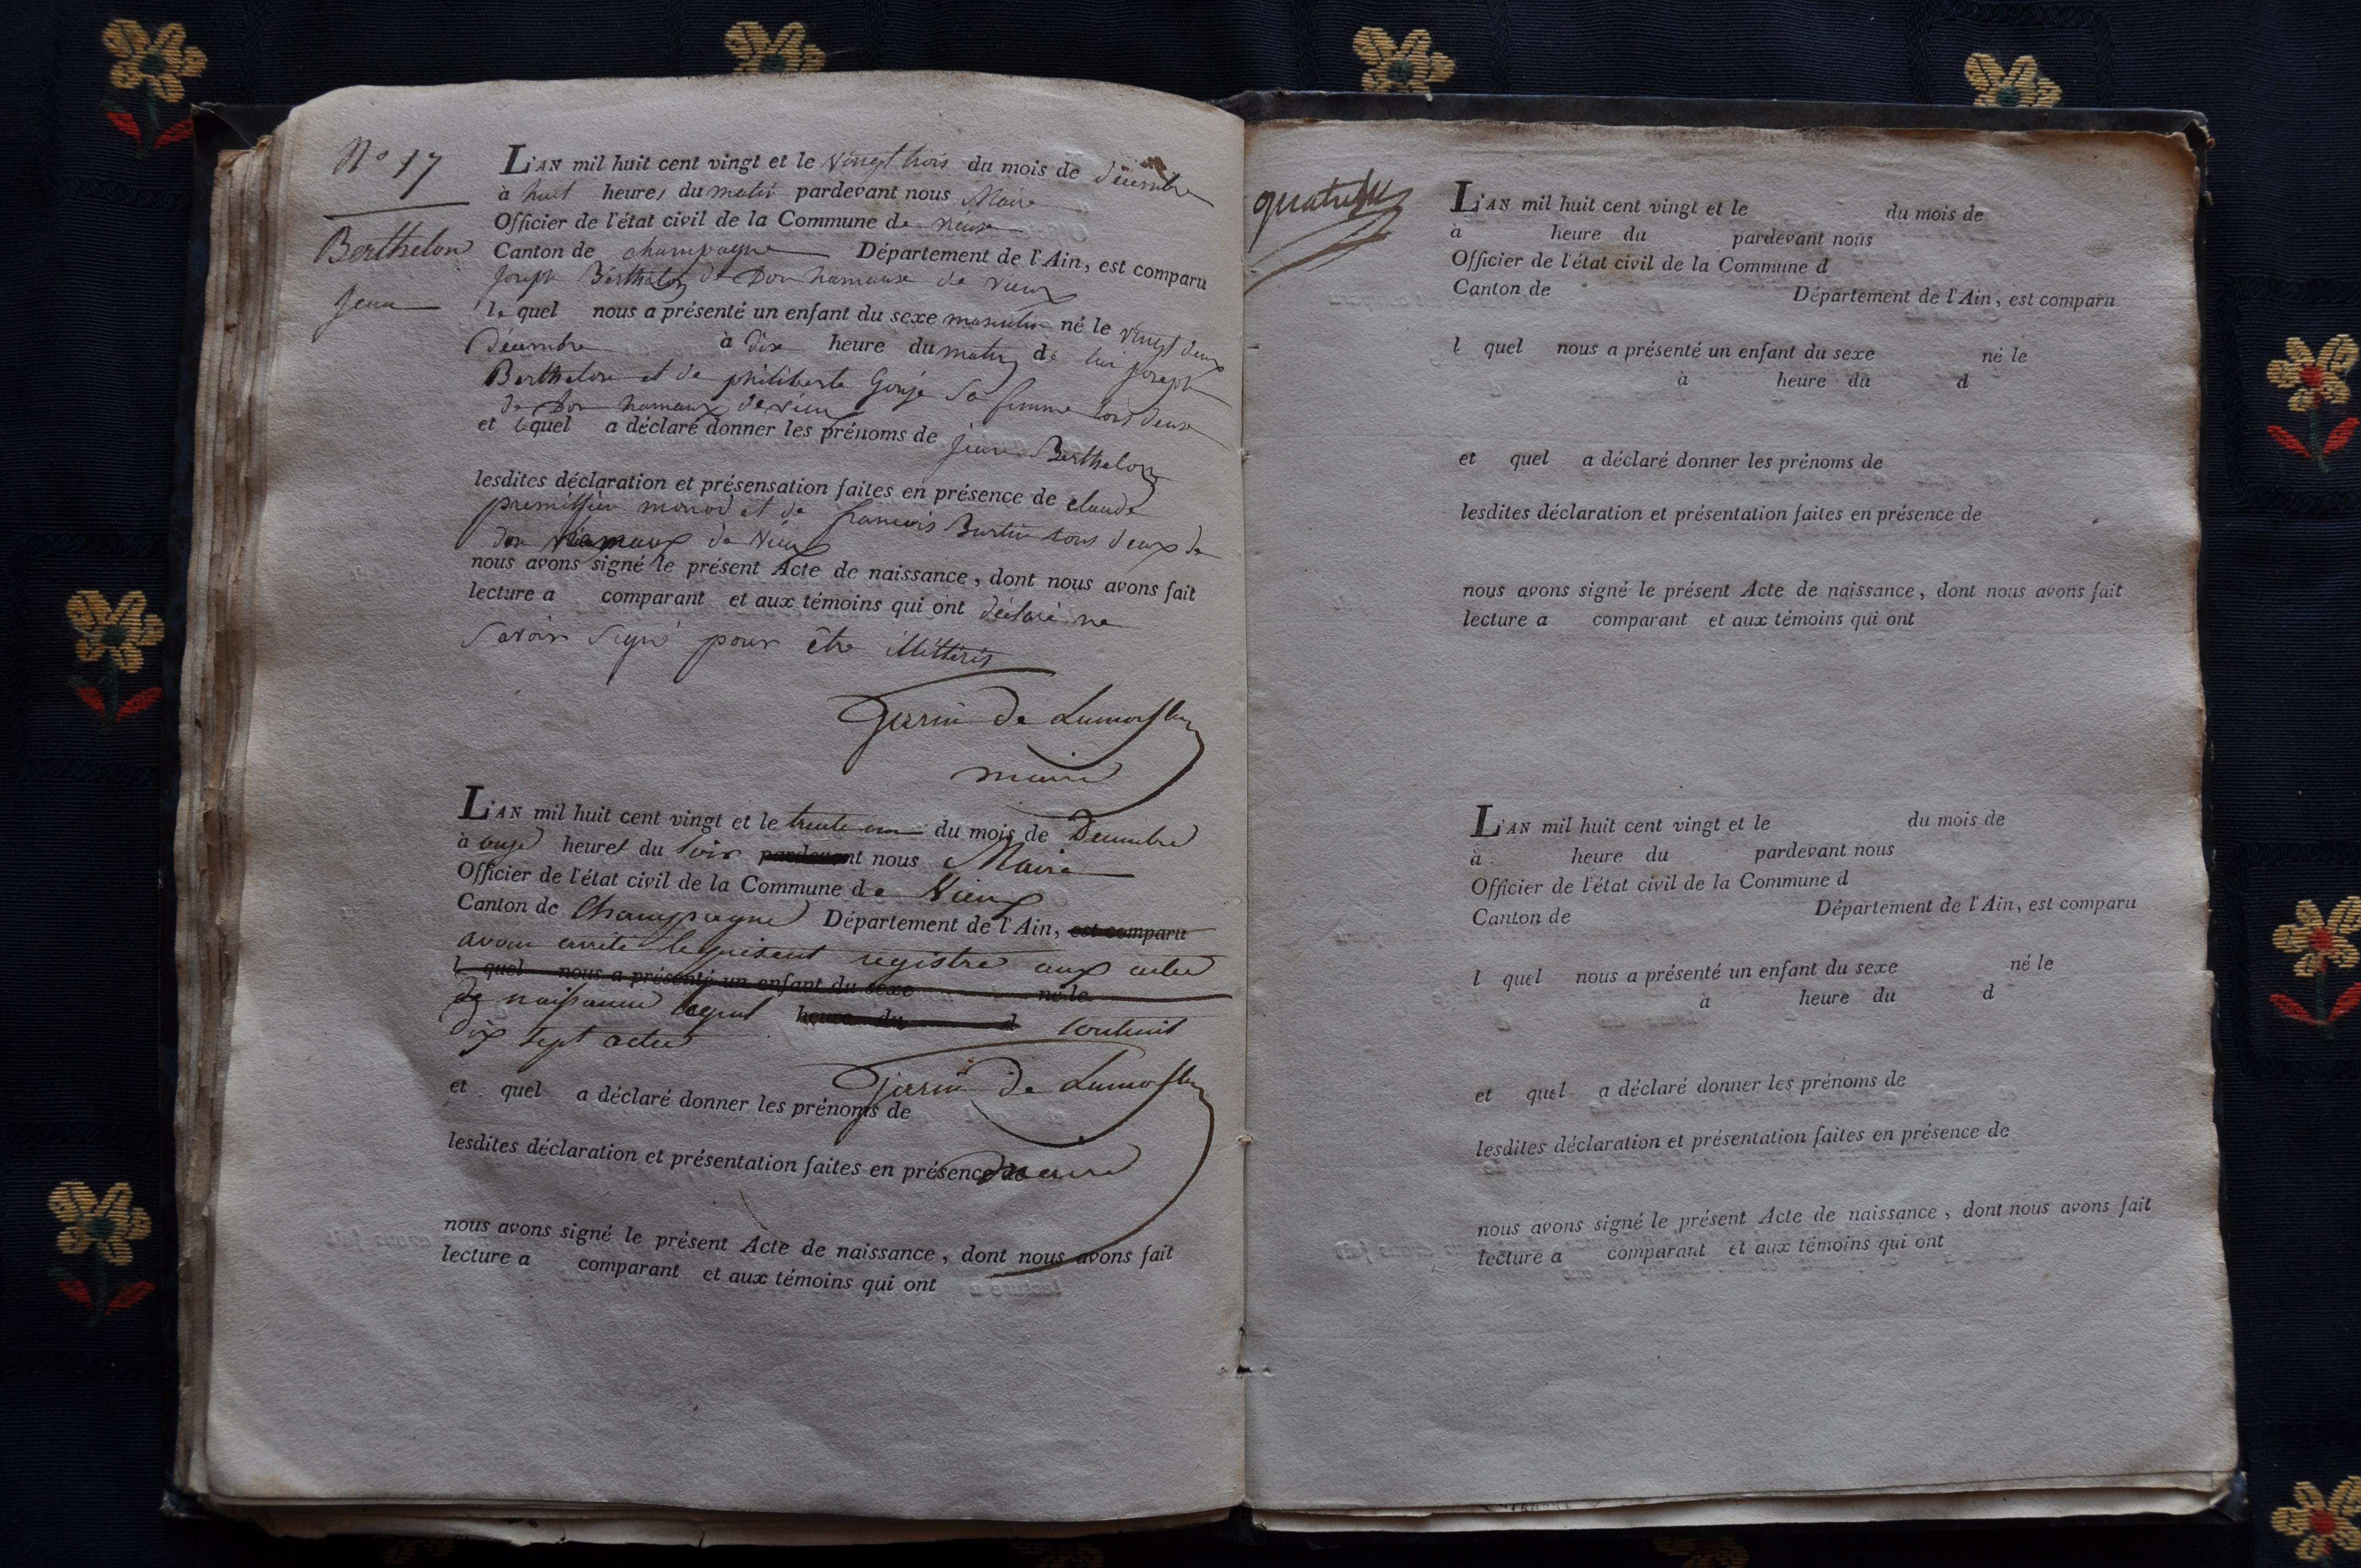 N° 17
Berthelon
Jean
L'AN mil huit cent vingt et le vingt trois du mois de décembre
à huit heures du matin pardevant nous Maire
Officier de l'état civil de la Commune de vieux
Canton de champagne Département de l'Ain, est comparu
joseph Berthelon de Don hameaux de vieux
le quel nous a présenté un enfant du sexe masculin né le vingt deux
décembre à dix heure du matin de lui joseph
Berthelon et de philiberte Gonje sa femme tous deux
de Don hameaux de vieux
et lequel a déclaré donner les prénoms de jean Berthelon
lesdites déclaration et présensation faites en présence de claude
monod et de francois Burtin tous deux de
don hameaux de vieux
nous avons signé le présent Acte de naissance, dont nous avons fait
lecture a comparant et aux témoins qui ont déclaré ne
savoir signé pour être illittérés
de
maire
L'AN mil huit cent vingt et le trente un du mois de Decembre
à onze heures du soir pardevant nous Maire
Officier de l'état civil de la Commune de Vieux
Canton de Champagne Département de l'Ain, est comparu
avons arrêté le present registre aux actes
l quel nous a présenté un enfant du sexe né le
de naissance lequel heure du d contenit
dix sept actes
de
et quel a déclaré donner les prénoms de
lesdites déclaration et présentation faites en présence de
maire
nous avons signé le présent Acte de naissance, dont nous avons fait
lecture a comparant et aux témoins qui ont
L'AN mil huit cent vingt et le du mois de
à heure du pardevant nous
Officier de l'état civil de la Commune d
Canton de Département de l'Ain, est comparu
l quel nous a présenté un enfant du sexe né le
à heure du d
et quel a déclaré donner les prénoms de
lesdites déclaration et présentation faites en présence de
nous avons signé le présent Acte de naissance, dont nous avons fait
lecture a comparant et aux témoins qui ont
L'AN mil huit cent vingt et le du mois de
à heure du pardevant nous
Officier de l'état civil de la Commune d
Canton de Département de l'Ain, est comparu
l quel nous a présenté un enfant du sexe né le
à heure du d
et quel a déclaré donner les prénoms de
lesdites déclaration et présentation faites en présence de
nous avons signé le présent Acte de naissance, dont nous avons fait
lecture a comparant et aux témoins qui ont